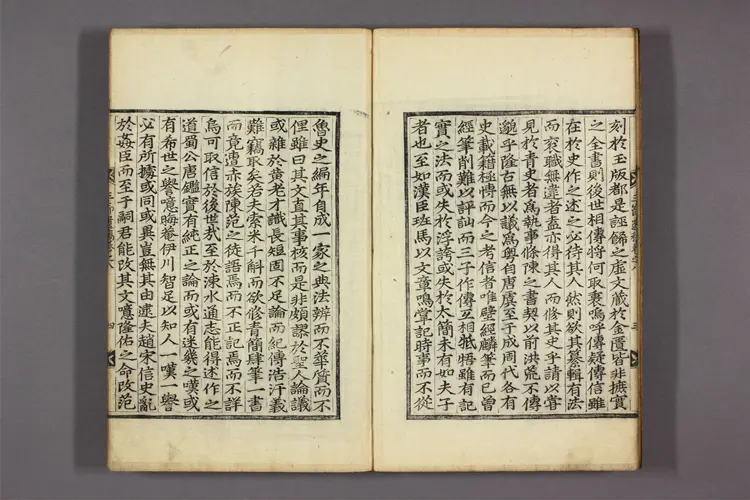 刻於玉版都是誣餙之虛文藏於金匱皆非摭實
之全書則後世相傳將何取裛嗚呼傳疑傳信雖
在於史作之述之必待其人然則欲其纂輯有法
而袞職無違者盍亦得其人而修其史乎請以甞
見於青史者爲執事條陳之書契以前洪荒不傳
邈乎隆古無以議爲粤自唐虞至于成周代各有
史載籍極愽而今之考信者唯壁經麟筆而已曾
經筆削難以評訕而三子作傳互相牴牾雖有記
實之法而或失於浮誇或失於太簡未有如夫子
者也至如漢臣班馬以文章鳴掌記時事而不從
魯史之編年自成一家之典法辨而不華質而不
俚雖曰其文直其事核而是非頗謬於聖人論議
或雜於黄老才識長短固不足論而紀傳浩汗義
難竊取矣若夫索米千斛而欲修青簡肆筆一書
而竟遭赤族陳范之徒語焉而不正記焉而不詳
烏可取信於後世㢤至於涑水通志能得述作之
道蜀公唐鑑實有純正之論而或有迷㡬之嘆或
有希世之譽噫晦菴伊川智足以知人一嘆一譽
必有所據或同或異豈無其由逮夫趙宋信史亂
於姦臣而至于嗣君能改其文噫隆佑之命改范
三
四